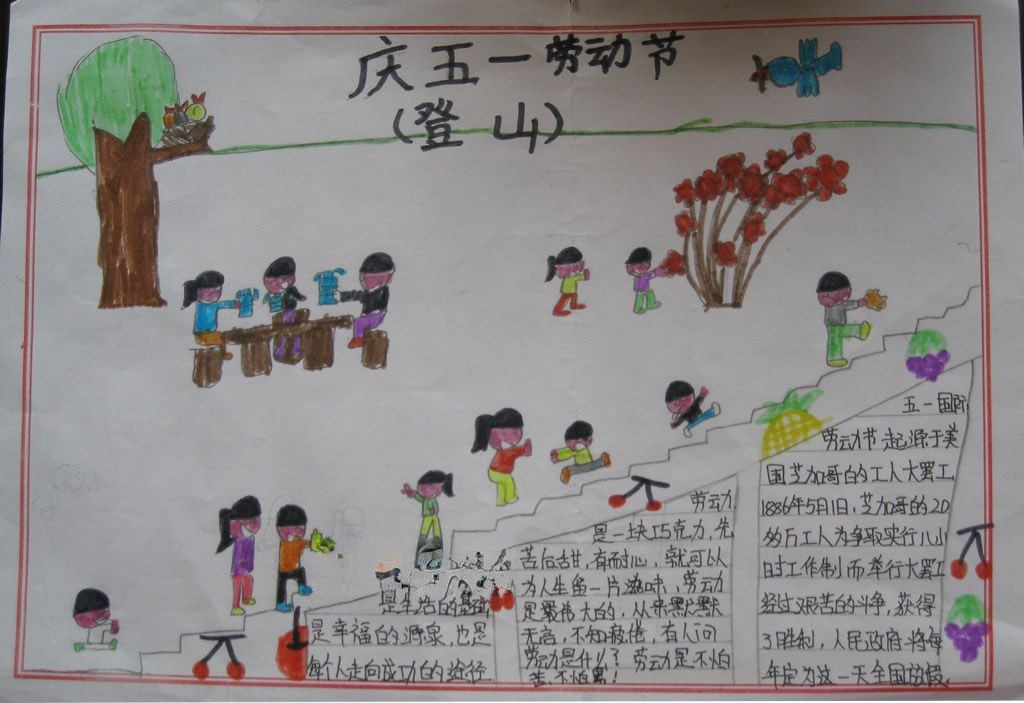 庆五一劳动节
(登山)
是生活的基础
是幸福的源泉,也是
每个人走向成功的途径
劳动
是一块巧克力,先
苦后甜,有耐心,就可以
为人生留一片滋味,劳动
是最伟大的,从来默默
无言,不知疲倦,有人问
劳动是什么?劳动是不怕
苦,不怕累!
五一国际
劳动节起源于美
国芝加哥的工人大罢工
1886年5月1日,芝加哥的20
多万工人为争取实行八小
时工作制而举行大罢工
经过艰苦的斗争,获得
了胜利,人民政府将每
年定为这一天全国放假.